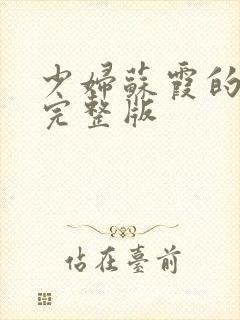 少婦蘇霞的
完整版
佔在臺前